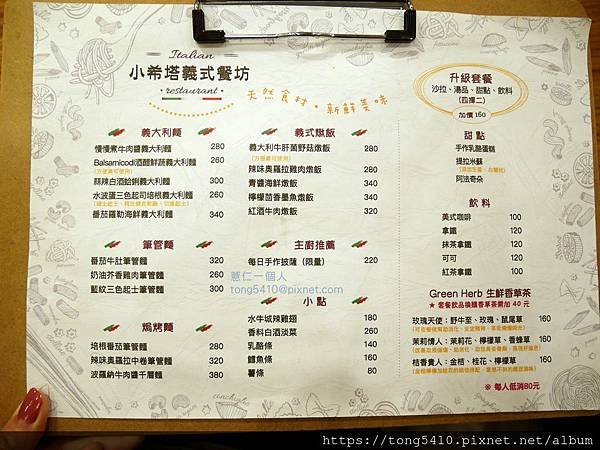 Italian
小希塔義式餐坊
restaurant
天然食材·新鮮美味
義大利麵
慢慢煮牛肉醬義大利麵 280
Balsamicod酒醋鮮蔬義大利麵 280
(方便素可使用)
蒜辣白酒蛤蜊義大利麵 260
水波蛋三色起司培根義大利麵 260
番茄羅勒海鮮義大利麵 340
筆管麵
番茄牛肚筆管麵 320
奶油芥香雞肉筆管麵 260
藍紋三色起士筆管麵 300
焗烤麵
培根番茄筆管麵 280
辣味奧羅拉中卷筆管麵 320
波羅納牛肉醬千層麵 380
義式燉飯
義大利牛肝菌野菇燉飯 280
(方便素可使用)
辣味奧羅拉雞肉燉飯 280
青醬海鮮燉飯 340
檸檬茴香墨魚燉飯 340
紅酒牛肉燉飯 320
主廚推薦
每日手作披薩(限量) 220
小點
水牛城辣雞翅 180
香料白酒淡菜 260
乳酪條 140
鱈魚條 160
薯條 80
升級套餐
沙拉、湯品、甜點、飲料
(四擇二)
加價 160
甜點
手作乳酪蛋糕
提拉米蘇
阿法奇朵
飲料
美式咖啡 100
拿鐵 120
抹茶拿鐵 120
可可 120
紅茶拿鐵 120
Green Herb 生鮮香草茶
★ 套餐飲品換購香草茶需加 40 元
玫瑰天使:野牛至、玫瑰、鼠尾草 160
茉莉情人:茉莉花、檸檬草、香蜂草 160
桔香貴人:金桔、桂花、檸檬草 160
※ 每人低消80元
薏仁一個人
tong5410@pixnet.com
https://tong5410.pixnet.net/album